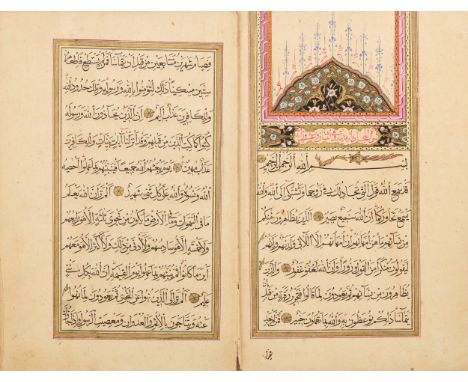 بسم الله الرحمن الرحيم
قد سمع الله قول التي تجادلك في زوجها وتشتكي الى الله والله
يسمع تحاوركما ان الله سميع بصير الذين يظاهرون منكم
من نسائهم ما هن امهاتهم ان امهاتهم الا اللائي ولدنهم وانهم
ليقولون منكرا من القول وزورا وان الله لعفو غفور والذين
يظاهرون من نسائهم ثم يعودون لما قالوا فتحرير رقبة من قبل ان
يتماسا ذلكم توعظون به والله بما تعملون خبير فمن لم يجد
فصيام شهرين متتابعين من قبل ان يتماسا فمن لم يستطع فاطعام
ستين مسكينا ذلك لتؤمنوا بالله ورسوله وتلك حدود الله
وللكافرين عذاب اليم ان الذين يحادون الله ورسوله
كبتوا كما كبت الذين من قبلهم وقد انزلنا ايات بينات وللكافرين
عذاب مهين يوم يبعثهم الله جميعا فينبئهم بما عملوا احصيه
الله ونسوه والله على كل شئ شهيد الم تر ان الله يعلم
ما في السموات وما في الارض ما يكون من نجوى ثلاثة الا هو رابعهم
ولا خمسة الا هو سادسهم ولا ادنى من ذلك ولا اكثر الا هو معهم
اين ما كانوا ثم ينبئهم بما عملوا يوم القيمة ان الله بكل شئ
عليم الم تر الى الذين نهوا عن النجوى ثم يعودون لما نهوا
عنه ويتناجون بالاثم والعدوان ومعصيت الرسول واذا